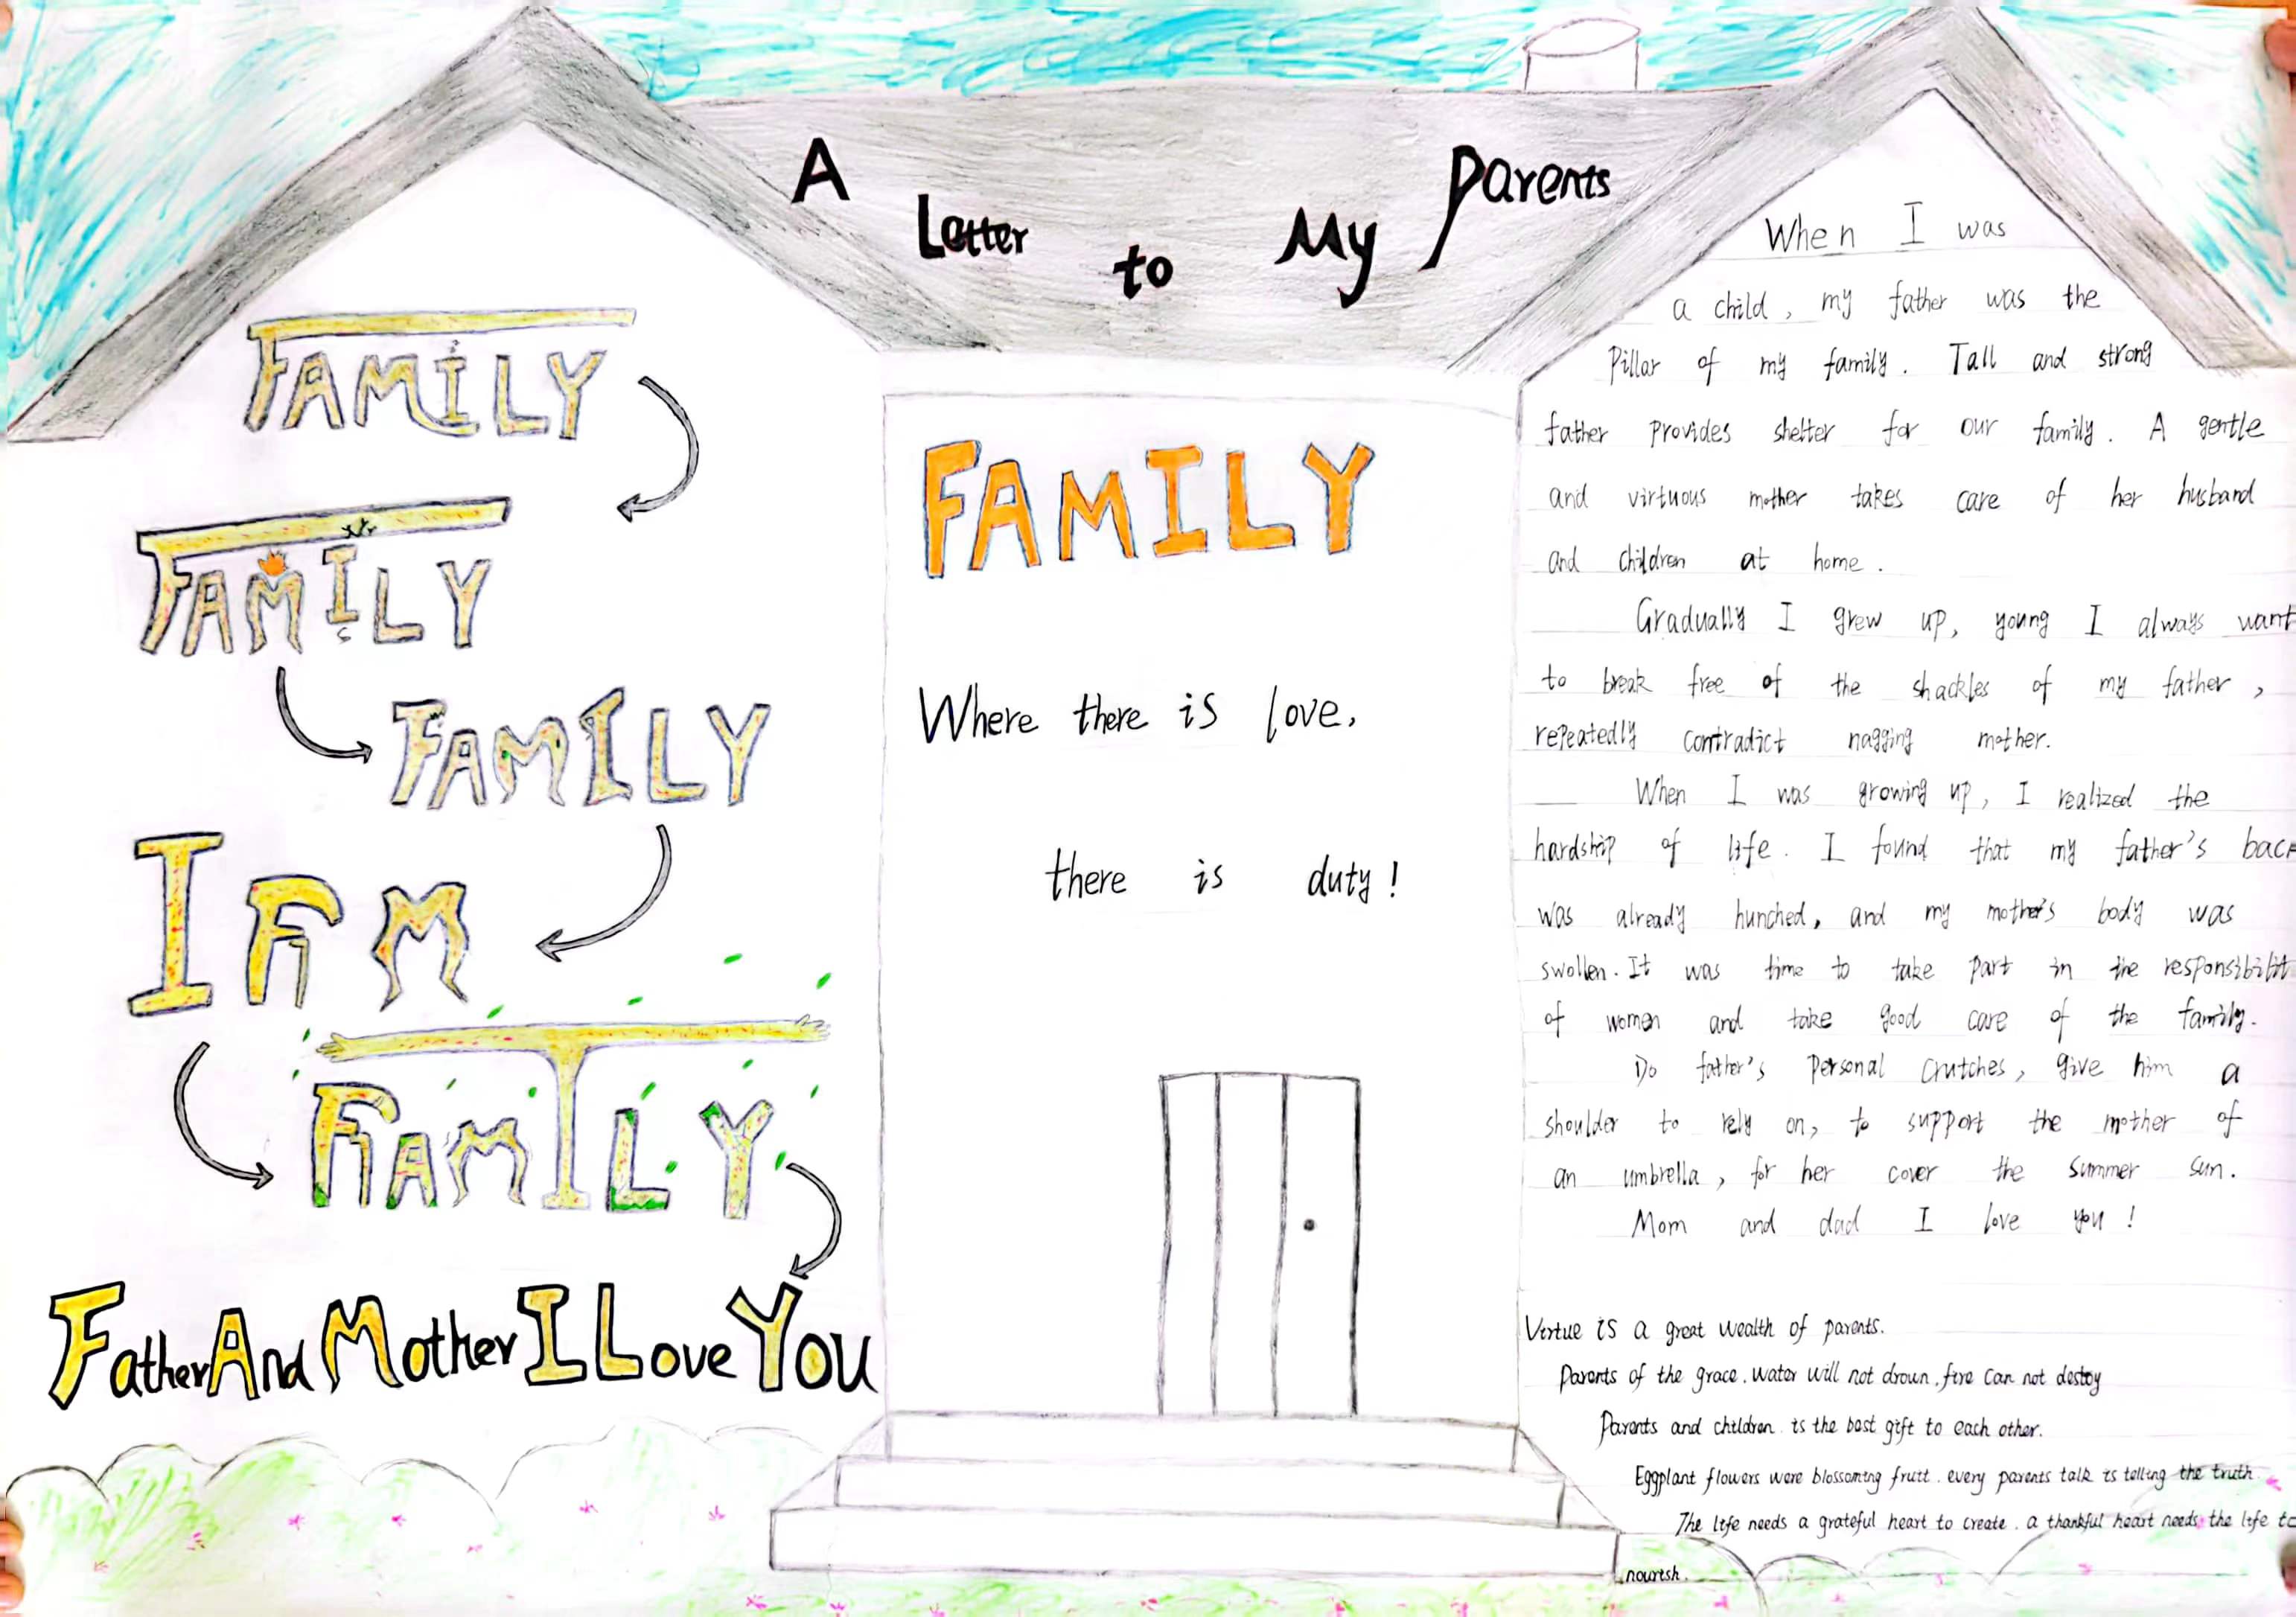 A Letter to My Parents
FAMILY
FAMILY
FAMILY
I F M
FAMILY
Father And Mother I Love You
FAMILY
Where there is love,
there is duty!
When I was
a child, my father was the
Pillar of my family. Tall and strong
father provides shelter for our family. A gentle
and virtuous mother takes care of her husband
and children at home.
Gradually I grew up, young I always want
to break free of the shackles of my father,
repeatedly contradict nagging mother.
When I was growing up, I realized the
hardship of life. I found that my father's back
was already hunched, and my mother's body was
swollen. It was time to take part in the responsibilit
of women and take good care of the family.
Do father's personal crutches, give him a
shoulder to rely on, to support the mother of
an umbrella, for her cover the summer sun.
Mom and dad I love you!
Virtue is a great wealth of parents.
Parents of the grace. water will not drown. fire can not destoy
Parents and children is the best gift to each other.
Eggplant flowers were blossoming fruit. every parents talk is telling the truth.
The life needs a grateful heart to create. a thankful heart needs the life to
nourish.